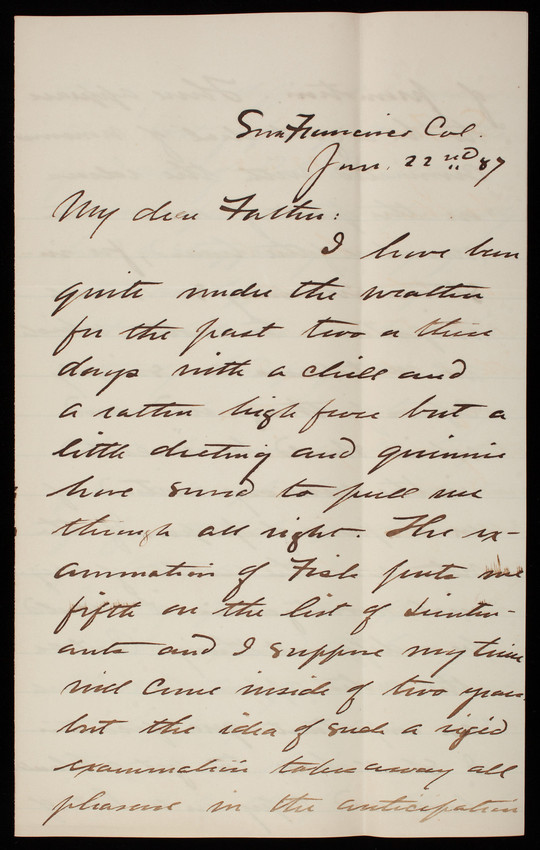 San Francisco Cal.
Jan. 22nd 87
My dear Father:
I have been
quite under the weather
for the past two or three
days with a chill and
a rather high fever but a
little dieting and quinine
have served to pull me
through all right. The ex-
amination of Fisk puts me
fifth on the list of Lieuten-
ants and I suppose my time
will come inside of two years
but the idea of such a rigid
examination takes away all
pleasure in the anticipation